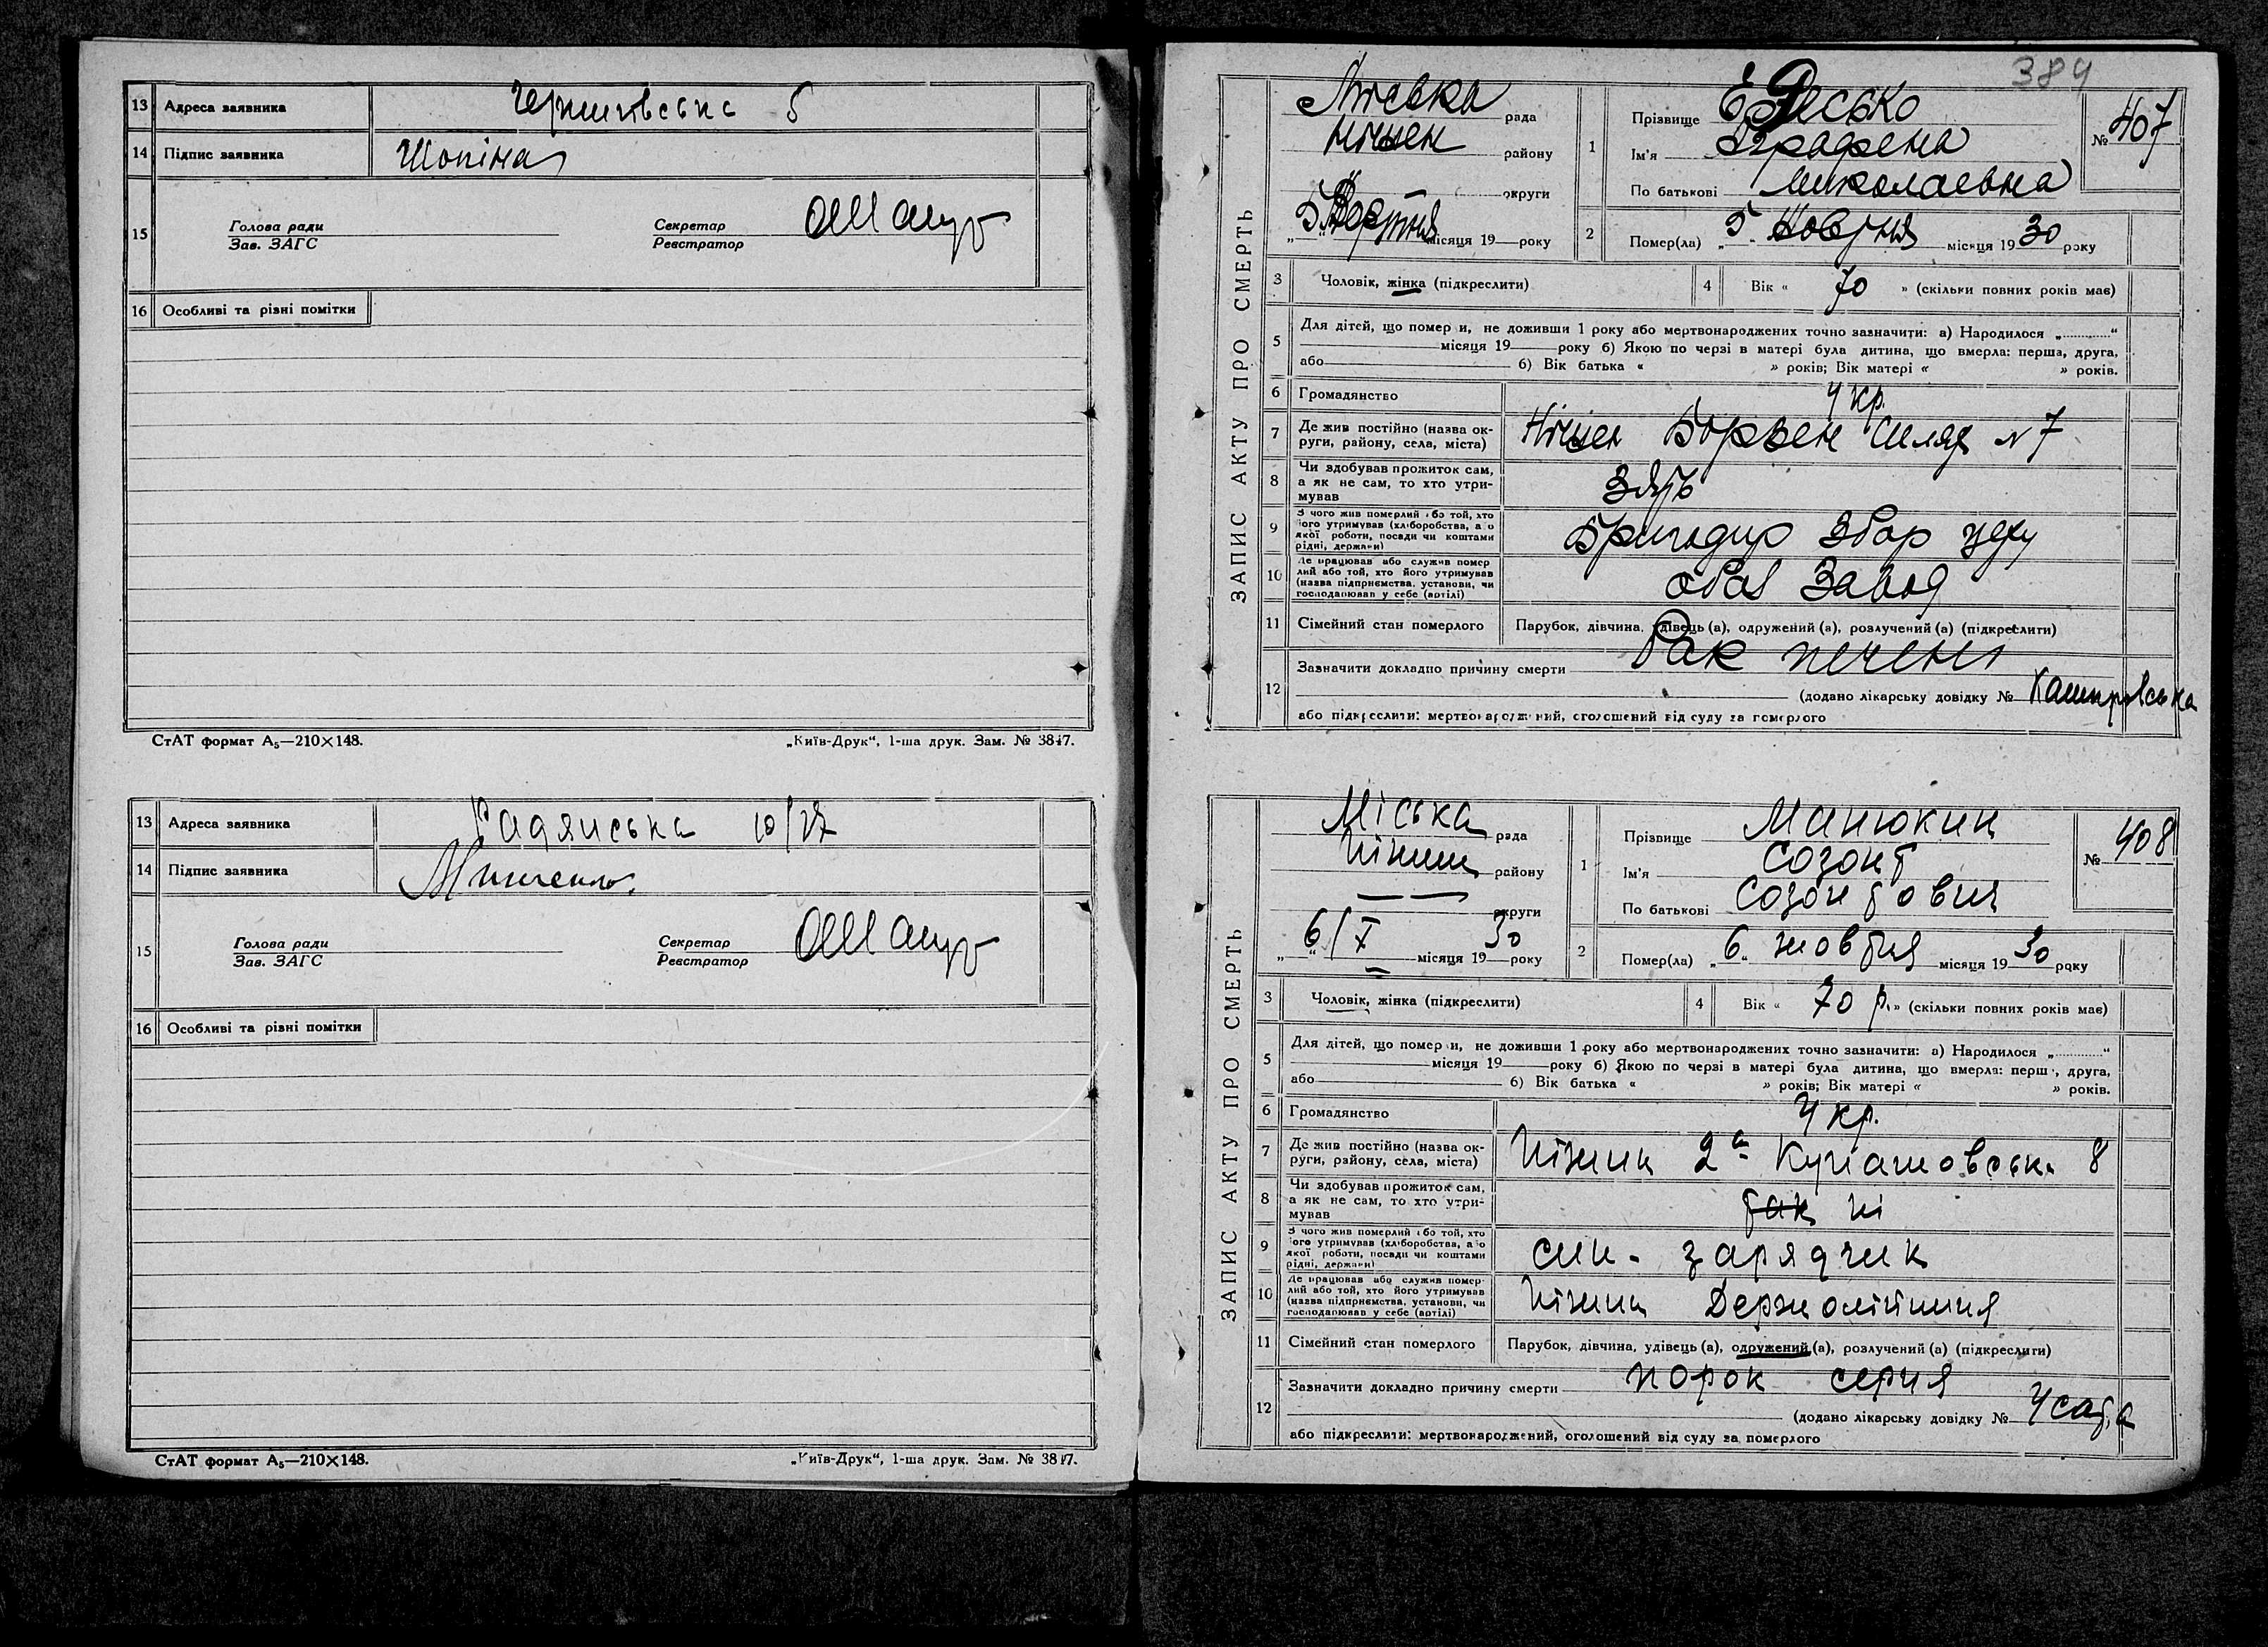 13 Адреса заявника Чернигівська 5
14 Підпис заявника Шопіна
15
Голова ради
Зав. ЗАГС
Секретар
Реєстратор
16 Особливі та різні помітки
СтАТ формат А₅—210×148.
„Київ-Друк“, 1-ша друк. Зам. № 3847.
13 Адреса заявника Радянська 10/27
14 Підпис заявника
15
Голова ради
Зав. ЗАГС
Секретар
Реєстратор
16 Особливі та різні помітки
СтАТ формат А₅—210×148.
„Київ-Друк“, 1-ша друк. Зам. № 3847.
384
ЗАПИС АКТУ ПРО СМЕРТЬ
Міська рада
Ніжен району
округи
місяця 19 року
1 Прізвище
Ім'я
По батькові Миколаевна
№ 407
2 Помер(ла) „5“ Жовтня місяця 1930 року
3 Чоловік, жінка (підкреслити)
4 Вік « 70 » (скільки повних років має)
5 Для дітей, що померли, не доживши 1 року або мертвонароджених точно зазначити: а) Народилося „............“
місяця 19 року б) Якою по черзі в матері була дитина, що вмерла: перша, друга,
або б) Вік батька « » років; Вік матері « » років.
6 Громадянство Укр.
7 Де жив постійно (назва ок-
руги, району, села, міста) Ніжен Борзен Шлях №7
8 Чи здобував прожиток сам,
а як не сам, то хто утри-
мував зять
9 З чого жив померлий або той, хто
його утримував (хліборобства, або
якої роботи, посади чи коштами
рідні, держави) Бригадир Збор цеху
10 Де працював або служив помер
лий або той, хто його утримував
(назва підприємства, установи, чи
господарював у себе (артілі) Завод
11 Сімейний стан померлого Парубок, дівчина, удівець (а), одружений (а), розлучений (а) (підкреслити)
12 Зазначити докладно причину смерти Рак печені
(додано лікарську довідку № Кашпровська
або підкреслити: мертвонароджений, оголошений від суду за померлого
ЗАПИС АКТУ ПРО СМЕРТЬ
Міська рада
Ніжин району
округи
6/X місяця 1930 року
1 Прізвище Манюкин
Ім'я Созонт
По батькові Созонтович
№ 408
2 Помер(ла) „6“ жовтня місяця 1930 року
3 Чоловік, жінка (підкреслити)
4 Вік « 70 р. » (скільки повних років має)
5 Для дітей, що померли, не доживши 1 року або мертвонароджених точно зазначити: а) Народилося „............“
місяця 19 року б) Якою по черзі в матері була дитина, що вмерла: перша, друга,
або б) Вік батька « » років; Вік матері « » років.
6 Громадянство Укр.
7 Де жив постійно (назва ок-
руги, району, села, міста) Ніжин 2а 8
8 Чи здобував прожиток сам,
а як не сам, то хто утри-
мував так ні
9 З чого жив померлий або той, хто
його утримував (хліборобства, або
якої роботи, посади чи коштами
рідні, держави) син - зарядчик
10 Де працював або служив помер-
лий або той, хто його утримував
(назва підприємства, установи, чи
господарював у себе (артілі) Ніжин Держолійниця
11 Сімейний стан померлого Парубок, дівчина, удівець (а), одружений (а), розлучений (а) (підкреслити)
12 Зазначити докладно причину смерти порок серця
(додано лікарську довідку №
або підкреслити: мертвонароджений, оголошений від суду за померлого